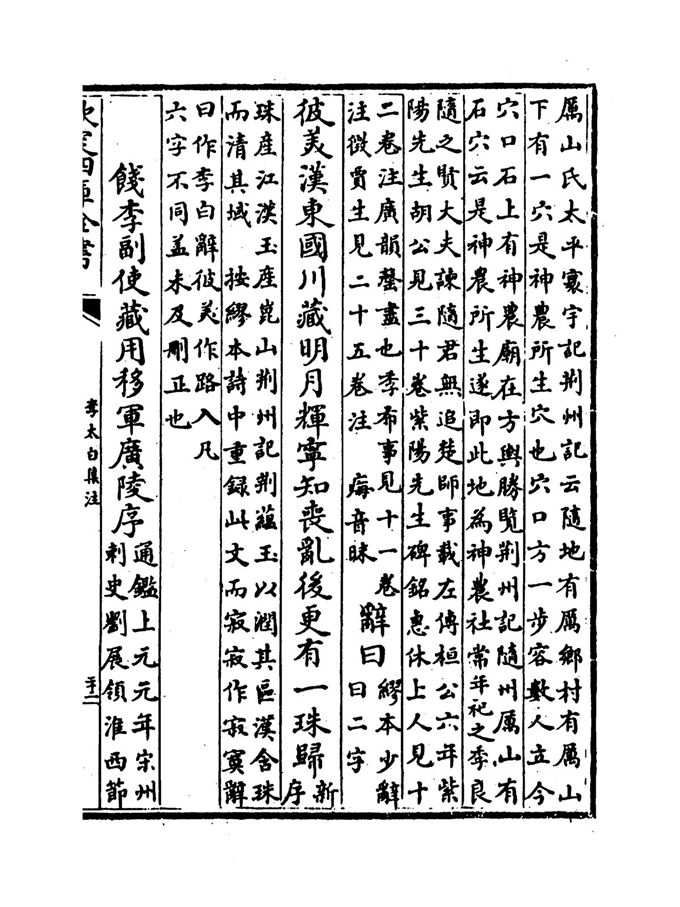 厲山氏太平寰宇記荆州記云隨地有厲鄉村有厲山
下有一穴是神農所生穴也穴口方一步容數人立今
穴口石上有神農廟在方輿勝覽荆州記隨州厲山有
石穴云是神農所生遂即此地為神農社常年祀之季良
隨之賢大夫諫隨君無追楚師事載左傳桓公六年紫
陽先生胡公見三十卷紫陽先生碑銘惠休上人見十
二卷注廣韻罄盡也季布事見十一卷
注微賈生見二十五卷注 痗音昧
辭曰
繆本少辭
曰二字
彼美漢東國川藏明月輝寧知喪亂後更有一珠歸
新
序
珠産江漢玉産崑山荆州記荆藴玉以潤其區漢含珠
而清其域 按繆本詩中重録此文而寂寂作寂寞辭
曰作李白辭彼美作路入凡
六字不同盖未及刪正也
餞李副使藏用移軍廣陵序
通鑑上元元年宋州
刺史劉展領淮西節
欽定四庫全書
李太白集注
二十二